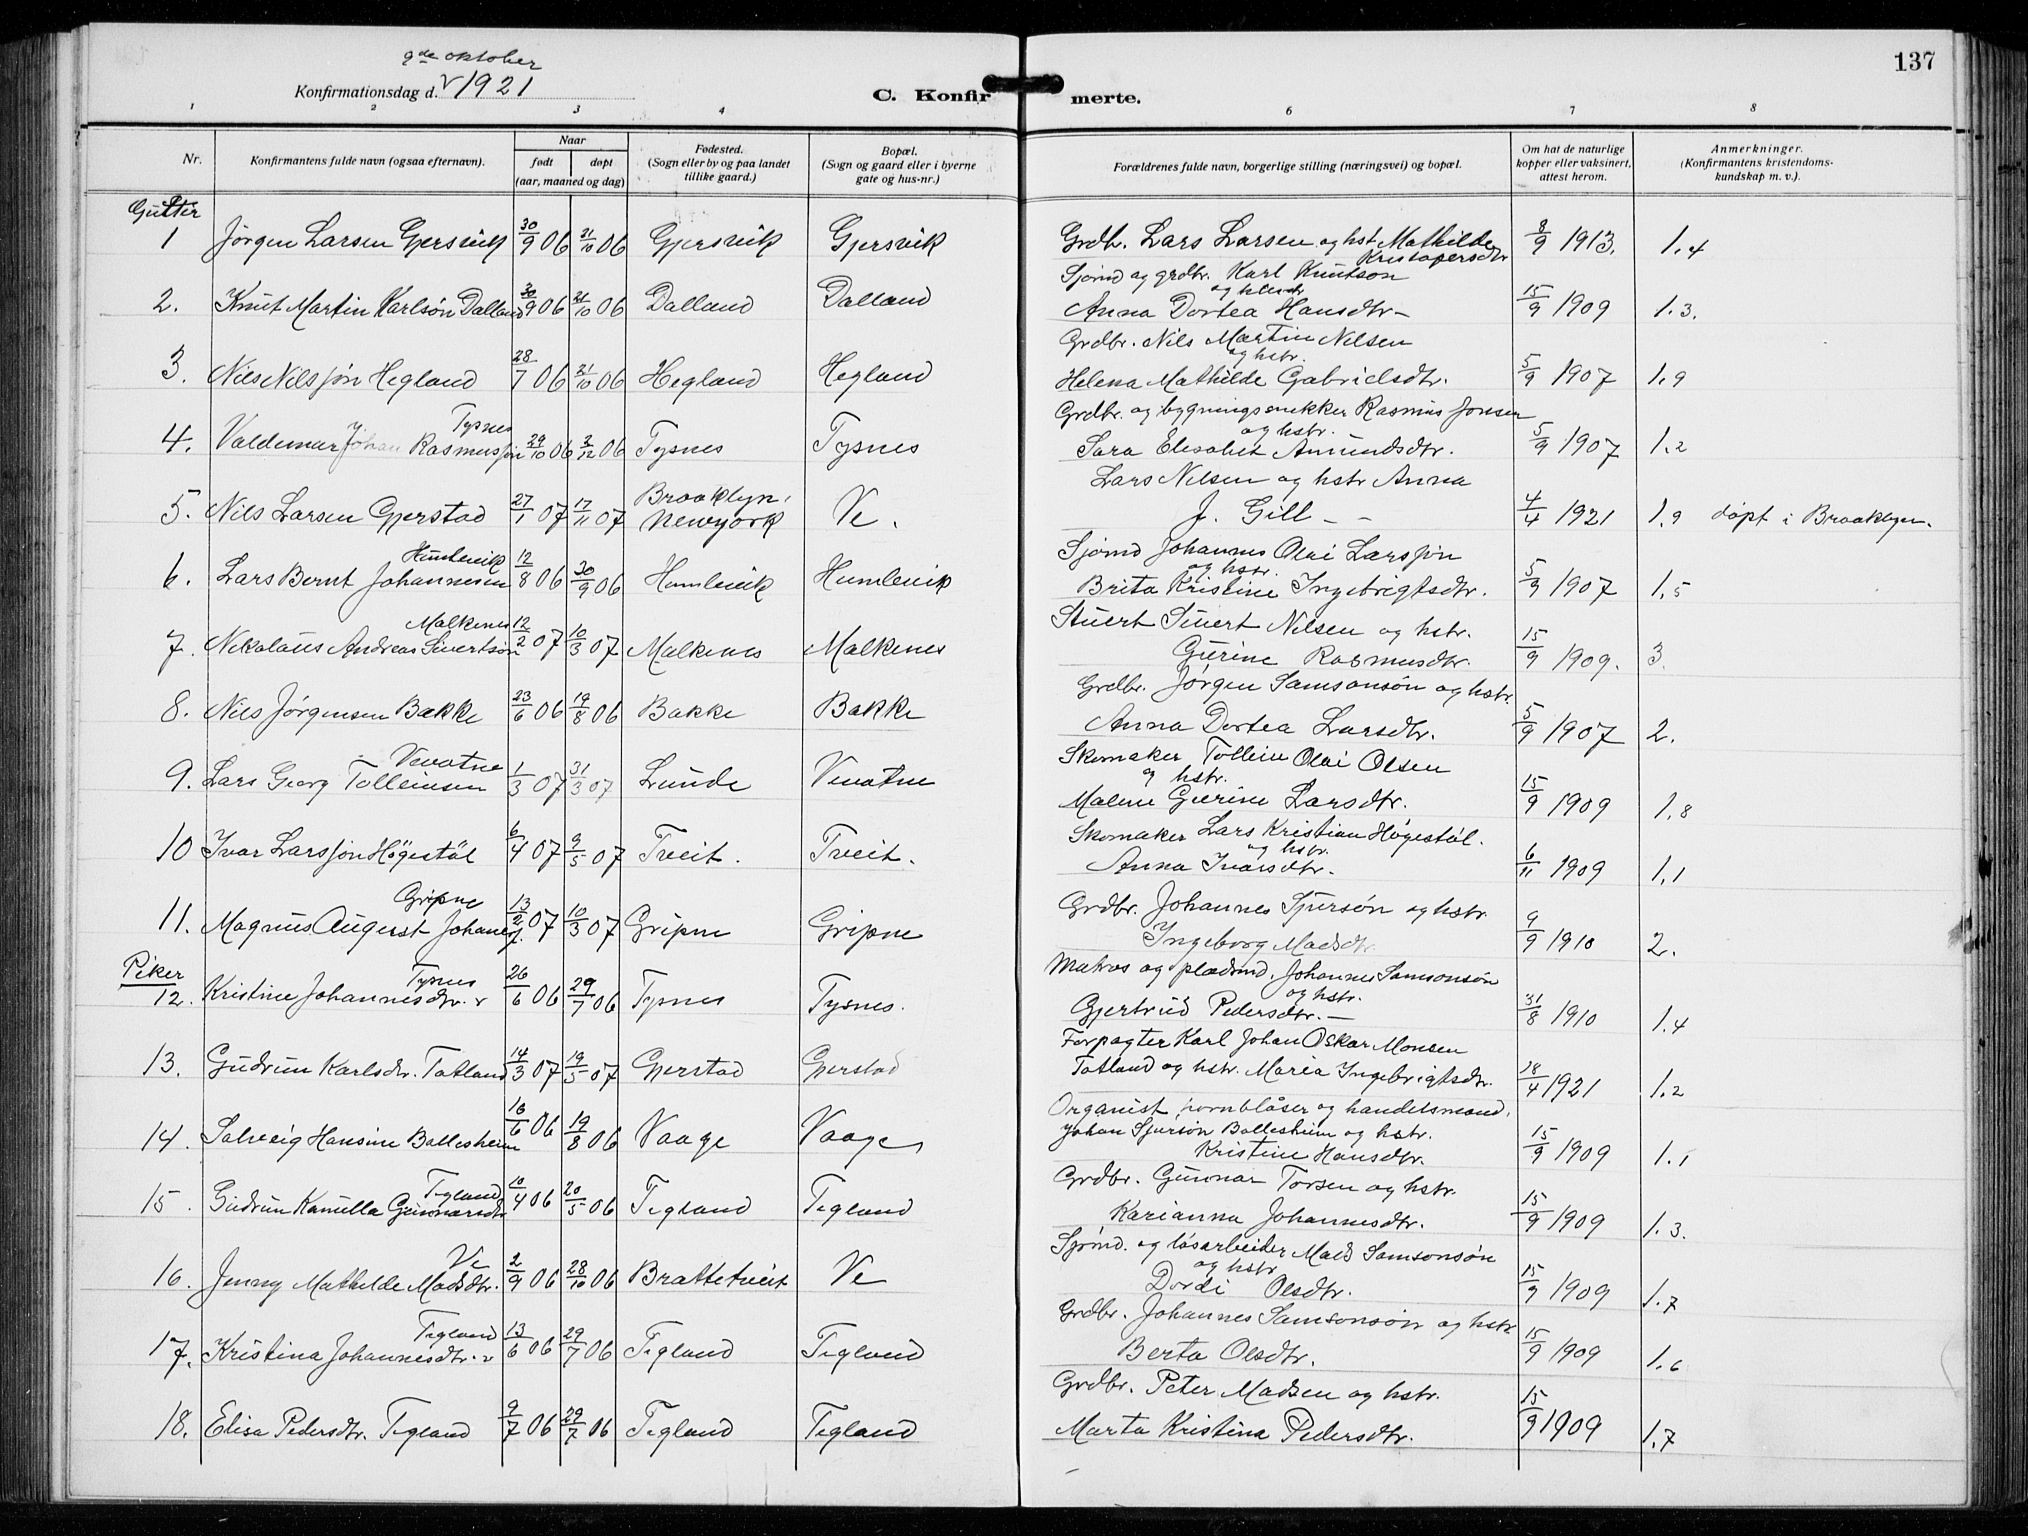 137
9de oktober
Konfirmationsdag d. 1921
C. Konfirmerte.
1 2 3 4 5 6 7 8
Nr.
Konfirmantens fulde navn (ogsaa efternavn).
Naar
født
døpt
(aar, maaned og dag)
Fødested.
(Sogn eller by og paa landet
tillike gaard.)
Bopæl.
(Sogn og gaard eller i byerne
gate og hus-nr.)
Forældrenes fulde navn, borgerlige stilling (næringsvei) og bopæl.
Om hat de naturlige
kopper eller vaksinert,
attest herom.
Anmerkninger.
(Konfirmantens kristendoms-
kundskap m. v.).
Gutter
1 Jørgen Larsen Gjersvik 30/9 06 21/10 06 Gjersvik Gjersvik Grdbr. Lars Larsen og hst. Mathilde 8/9 1913. 1.4
Kristofersdtr
Sjømd og grdbr. Karl Knutson
og hustr
2. Knut Martin Karlsøn Dalland 30/9 06 21/10 06 Dalland Dalland Anna Dortea Hansdtr- 15/9 1909 1.3.
Grdbr. Nils Martin Nilsen
og hstr.
3. Nils Nilssøn Hegland 28/7 06 21/10 06 Hegland Hegland Helena Mathilde Gabrielsdtr. 5/9 1907 1.9
Grdbr. og bygningssnekker Rasmus Jonsen
Tysnes og hstr.
4. Valdemar Johan Rasmussøn 29/10 06 2/12 06 Tysnes Tysnes Sara Elesabet Amundsdtr. 5/9 1907 1.2
Lars Nilsen og hstr Anna
Brooklyn,
5. Nils Larsen Gjerstad 27/1 07 17/11 07 Newyork Ve. J. Gill - - 4/4 1921 1.9 døpt i Brooklyn.
Sjømd Johannes Olai Larssøn
Humlevik og hstr.
6. Lars Bernt Johannesen 12/8 06 30/9 06 Humlevik Humlevik Brita Kristine Ingebrigtsdtr. 5/9 1907 1.5
Stuert Sivert Nilsen og hstr.
Malkenes
7. Nikolaus Andreas Sivertsøn 12/2 07 10/3 07 Malkenes Malkenes Gurine Rasmusdtr. 15/9 1909. 3.
Grdbr. Jørgen Samsonsøn og hstr.
8. Nils Jørgensen Bakke 23/6 06 19/8 06 Bakke Bakke Anna Dortea Larsdtr. 5/9 1907 2.
Skomaker Tollein Olai Olsen
Vevatne og hstr.
9. Lars Georg Tolleinsen 1/3 07 31/3 07 Lunde Vevatne Malene Gurine Larsdtr. 15/9 1909 1.8
Skomaker Lars Kristian Høgestøl.
og hstr.
10 Ivar Larssøn Høgestøl 6/4 07 9/5 07 Tveit. Tveit. Anna Ivarsdtr. 6/11 1909 1.1
Grdbr. Johannes Sjursøn og hstr
Gripne
11. Magnus August Johanes. 13/2 07 10/3 07 Gripne Gripne Ingeborg Madsdtr. 9/9 1910 2.
Piker
Matros og pladsmd. Johannes Samsonsøn
Tysnes og hstr.
12. Kristine Johannesdtr. 26/6 06 29/7 06 Tysnes Tysnes. Gjertrud Pedersdtr. - 31/8 1910 1.4
Forpagter Karl Johan Oskar Monsen
13. Gudrun Karlsdtr. Tatland 14/3 07 19/5 07 Gjerstad Gjerstad Tatland og hstr. Maria Ingebrigtsdtr. 18/4 1921 1.2
Organist, hornblåser og handelsmand.
Johan Sjursøn Ballesheim og hstr.
14. Solveig Hansine Ballesheim 16/6 06 19/8 06 Vaage Vaage Kristine Hansdtr. 15/9 1909 1.1
Grdbr. Gunnar Torsen og hstr.
Tegland
15. Gudrun Kamilla Gunnarsdtr 10/4 06 20/5 06 Tegland Tegland Karianna Johannesdtr. 15/9 1909 1.3.
Sjømd. og løsarbeider Mads Samsonsøn
Ve og hstr
16. Jenny Mathilde Madsdtr. 2/9 06 28/10 06 Brattetveit Ve Dordi Olsdtr. 15/9 1909 1.7
Grdbr. Johannes Samsonsøn og hstr.
Tegland
17. Kristina Johannesdtr. 13/6 06 29/7 06 Tegland Tegland Berta Olsdtr. 15/9 1909 1.6
Grdbr. Peter Madsen og hstr.
18. Elisa Pedersdtr. Tegland 9/7 06 29/7 06 Tegland Tegland Marta Kristina Pedersdtr. 15/9 1909 1.7